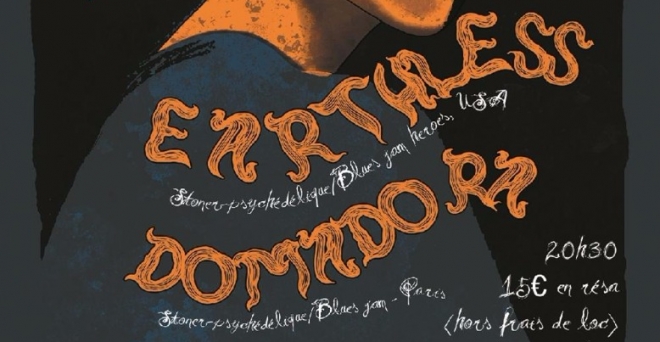 EARTHLESS
Stoner-psychédélique/Blues jam heroes, USA
DOMADORA
Stoner-psychédélique/Blues jam - Paris
20h30
15€ en résa
(hors frais de loc)